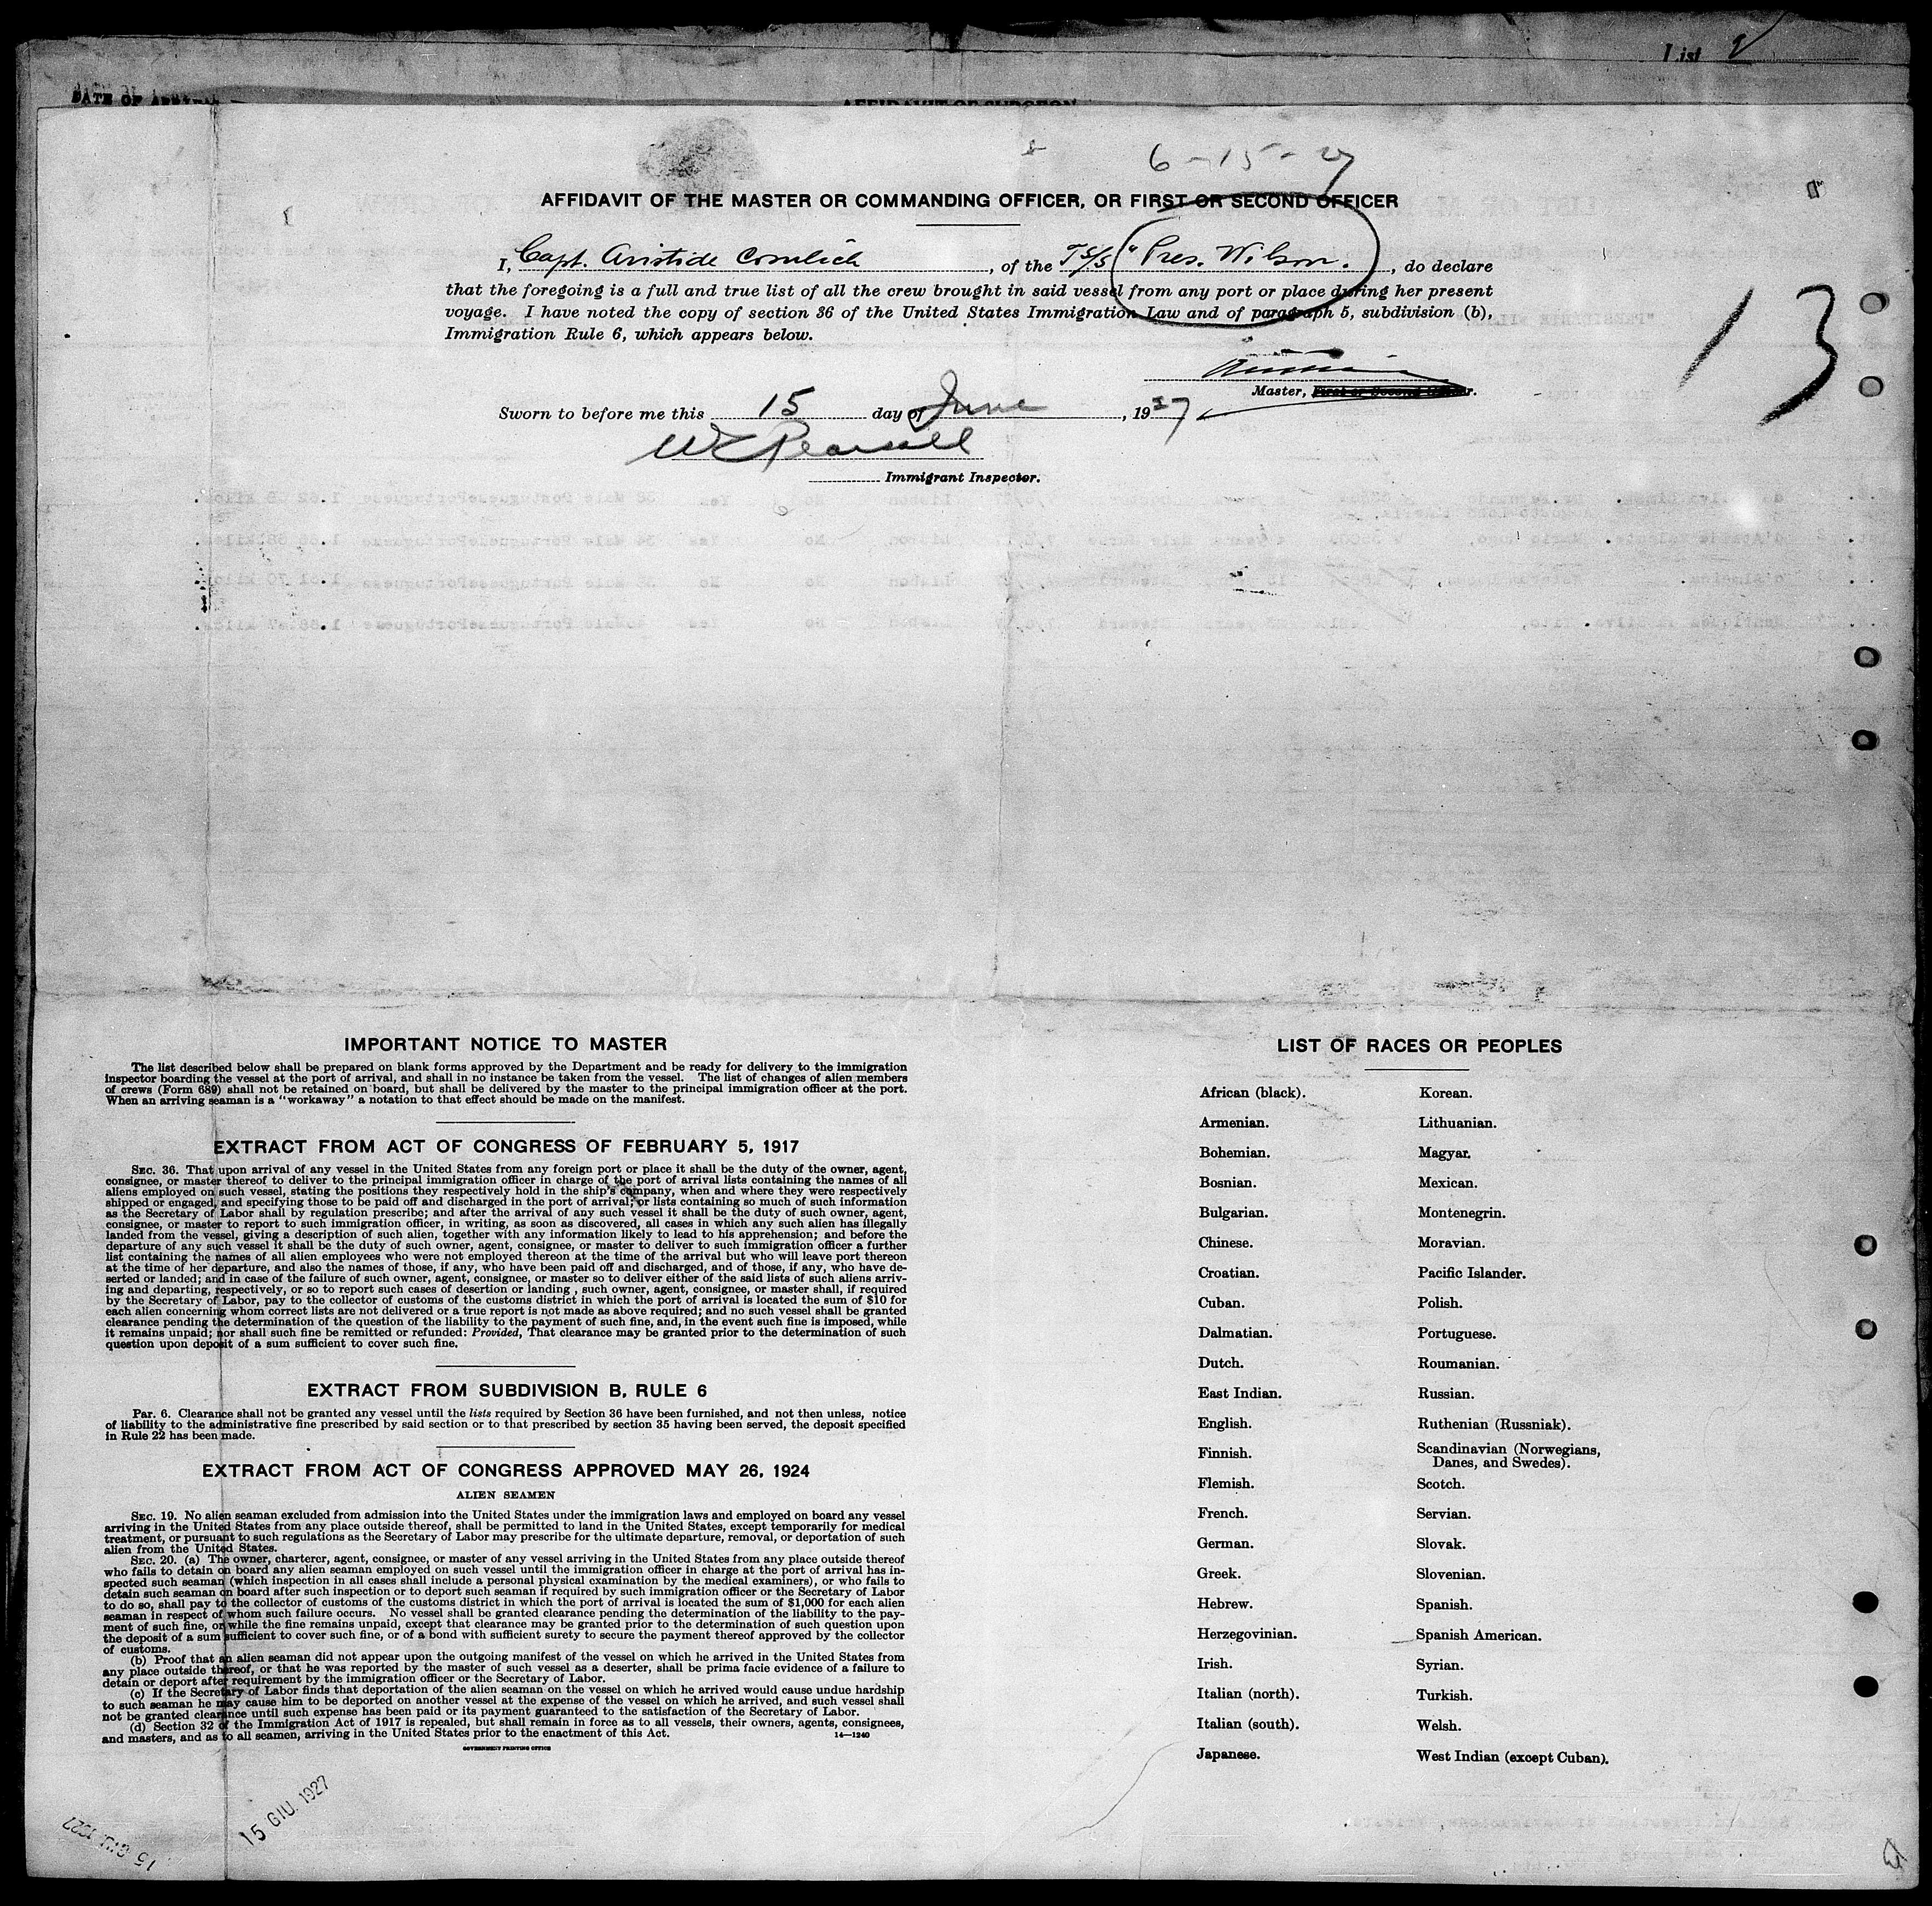 List 2
DATE OF ARRIVAL
AFFIDAVIT OF SURGEON
6-15-27
AFFIDAVIT OF THE MASTER OR COMMANDING OFFICER, OR FIRST OR SECOND OFFICER
I, Capt. Aristide Cosulich, of the TS/S "Pres. Wilson., do declare
that the foregoing is a full and true list of all the crew brought in said vessel from any port or place during her present
voyage. I have noted the copy of section 36 of the United States Immigration Law and of paragraph 5, subdivision (b),
Immigration Rule 6, which appears below.
13
Master, First or Second Officer.
Sworn to before me this 15 day of June, 1927
Immigrant Inspector.
IMPORTANT NOTICE TO MASTER
The list described below shall be prepared on blank forms approved by the Department and be ready for delivery to the immigration
inspector boarding the vessel at the port of arrival, and shall in no instance be taken from the vessel. The list of changes of alien members
of crews (Form 689) shall not be retained on board, but shall be delivered by the master to the principal immigration officer at the port.
When an arriving seaman is a "workaway" a notation to that effect should be made on the manifest.
EXTRACT FROM ACT OF CONGRESS OF FEBRUARY 5, 1917
SEC. 36. That upon arrival of any vessel in the United States from any foreign port or place it shall be the duty of the owner, agent,
consignee, or master thereof to deliver to the principal immigration officer in charge of the port of arrival lists containing the names of all
aliens employed on such vessel, stating the positions they respectively hold in the ship's company, when and where they were respectively
shipped or engaged, and specifying those to be paid off and discharged in the port of arrival; or lists containing so much of such information
as the Secretary of Labor shall by regulation prescribe; and after the arrival of any such vessel it shall be the duty of such owner, agent,
consignee, or master to report to such immigration officer, in writing, as soon as discovered, all cases in which any such alien has illegally
landed from the vessel, giving a description of such alien, together with any information likely to lead to his apprehension; and before the
departure of any such vessel it shall be the duty of such owner, agent, consignee, or master to deliver to such immigration officer a further
list containing the names of all alien employees who were not employed thereon at the time of the arrival but who will leave port thereon
at the time of her departure, and also the names of those, if any, who have been paid off and discharged, and of those, if any, who have de-
serted or landed; and in case of the failure of such owner, agent, consignee, or master so to deliver either of the said lists of such aliens arriv-
ing and departing, respectively, or so to report such cases of desertion or landing , such owner, agent, consignee, or master shall, if required
by the Secretary of Labor, pay to the collector of customs of the customs district in which the port of arrival is located the sum of $10 for
each alien concerning whom correct lists are not delivered or a true report is not made as above required; and no such vessel shall be granted
clearance pending the determination of the question of the liability to the payment of such fine, and, in the event such fine is imposed, while
it remains unpaid; nor shall such fine be remitted or refunded: Provided, That clearance may be granted prior to the determination of such
question upon deposit of a sum sufficient to cover such fine.
EXTRACT FROM SUBDIVISION B, RULE 6
Par. 6. Clearance shall not be granted any vessel until the lists required by Section 36 have been furnished, and not then unless, notice
of liability to the administrative fine prescribed by said section or to that prescribed by section 35 having been served, the deposit specified
in Rule 22 has been made.
EXTRACT FROM ACT OF CONGRESS APPROVED MAY 26, 1924
ALIEN SEAMEN
SEC. 19. No alien seaman excluded from admission into the United States under the immigration laws and employed on board any vessel
arriving in the United States from any place outside thereof, shall be permitted to land in the United States, except temporarily for medical
treatment, or pursuant to such regulations as the Secretary of Labor may prescribe for the ultimate departure, removal, or deportation of such
alien from the United States.
SEC. 20. (a) The owner, charterer, agent, consignee, or master of any vessel arriving in the United States from any place outside thereof
who fails to detain on board any alien seaman employed on such vessel until the immigration officer in charge at the port of arrival has in-
spected such seaman (which inspection in all cases shall include a personal physical examination by the medical examiners), or who fails to
detain such seaman on board after such inspection or to deport such seaman if required by such immigration officer or the Secretary of Labor
to do so, shall pay to the collector of customs of the customs district in which the port of arrival is located the sum of $1,000 for each alien
seaman in respect of whom such failure occurs. No vessel shall be granted clearance pending the determination of the liability to the pay-
ment of such fine, or while the fine remains unpaid, except that clearance may be granted prior to the determination of such question upon
the deposit of a sum sufficient to cover such fine, or of a bond with sufficient surety to secure the payment thereof approved by the collector
of customs.
(b) Proof that an alien seaman did not appear upon the outgoing manifest of the vessel on which he arrived in the United States from
any place outside thereof, or that he was reported by the master of such vessel as a deserter, shall be prima facie evidence of a failure to
detain or deport after requirement by the immigration officer or the Secretary of Labor.
(c) If the Secretary of Labor finds that deportation of the alien seaman on the vessel on which he arrived would cause undue hardship
to such seaman he may cause him to be deported on another vessel at the expense of the vessel on which he arrived, and such vessel shall
not be granted clearance until such expense has been paid or its payment guaranteed to the satisfaction of the Secretary of Labor.
(d) Section 32 of the Immigration Act of 1917 is repealed, but shall remain in force as to all vessels, their owners, agents, consignees,
and masters, and as to all seamen, arriving in the United States prior to the enactment of this Act.
14—1240
GOVERNMENT PRINTING OFFICE
LIST OF RACES OR PEOPLES
African (black).
Armenian.
Bohemian.
Bosnian.
Bulgarian.
Chinese.
Croatian.
Cuban.
Dalmatian.
Dutch.
East Indian.
English.
Finnish.
Flemish.
French.
German.
Greek.
Hebrew.
Herzegovinian.
Irish.
Italian (north).
Italian (south).
Japanese.
Korean.
Lithuanian.
Magyar.
Mexican.
Montenegrin.
Moravian.
Pacific Islander.
Polish.
Portuguese.
Roumanian.
Russian.
Ruthenian (Russniak).
Scandinavian (Norwegians,
Danes, and Swedes).
Scotch.
Servian.
Slovak.
Slovenian.
Spanish.
Spanish American.
Syrian.
Turkish.
Welsh.
West Indian (except Cuban).
15 GIU. 1927
15 GIU. 1927